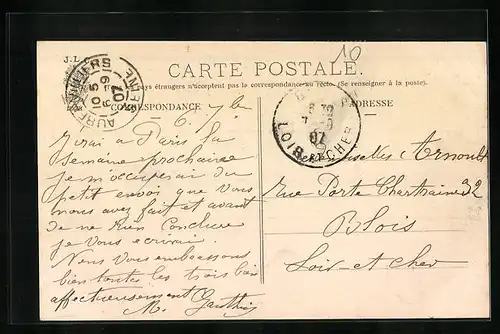 10
J.L.
CARTE POSTALE
pays étrangers n'acceptent pas la correspondance au recto. (Se renseigner à la poste).
CORRESPONDANCE
ADRESSE
AUBERVILLIERS
SEINE
10 5
6
07
LOIR-ET-CHER
07
J'irai à Paris la
semaine prochaine
je m'occuperai du
petit envoi que vous
nous avez fait et avant
de ne rien conclure
je vous écrirai.
Nous vous embrassons
bien toutes les trois bien
affectueusement
M. Gauthier
Arnoult
rue Porte Chartraine 32
Blois
Loir-et-Cher